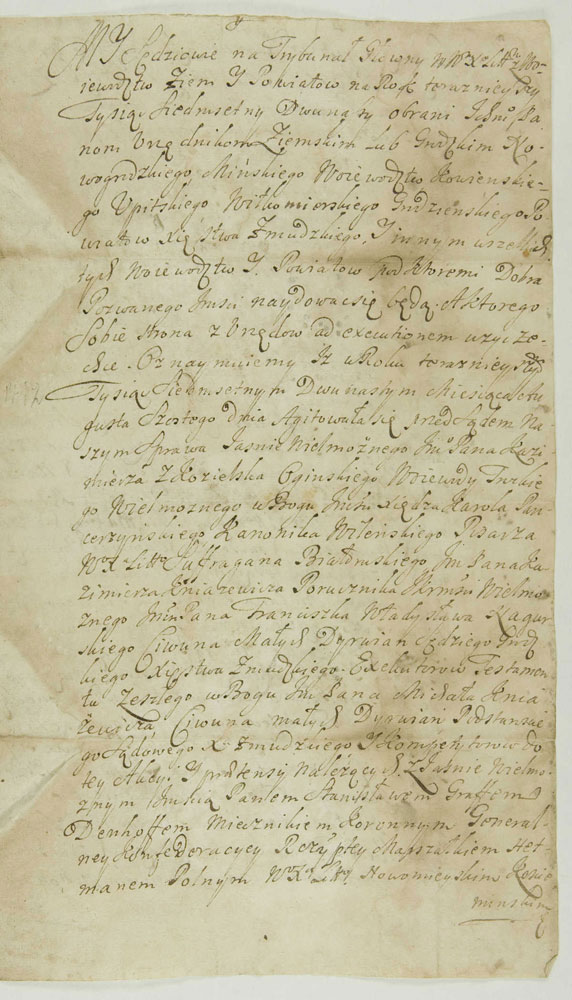 MY Sędziowie na Trybunał Głowny W° X° Litt° z Wo-
iewodztw Ziem Y Powiatow na Rok teraznieyszy
Tysiąc Siedmsetny Dwunasty obrani Ichm° Pa
nom Urzędnikom Ziemskim Lub Grodzkim No-
wogrodzkiego, Mińskiego Woiewodztw Kowienskie-
go Upitskiego Wiłkomierskiego Grodzieńskiego Po
wiatow Xięstwa Zmudzkiego, Y innym wszelkich
tych Woiewodztw Y Powiatow pod ktoremi Dobra
Pozwanego Jmści naydowac się będą. A ktorego
Sobie strona z Urzędow ad executionem uzyć ze-
chce. Oznaymuiemy Iz w Roku teraznieyszym
Tysiąc Siedmsetnym Dwunastym Miesiąca Au
gusta Szostego dnia Agitowała się przed Sądem Na
szym Sprawa Jasnie Wielmożnego Jm° Pana Kazi
mierza z Kozielska Oginskiego Woiewody Trockie
go Wielmożnego w Bogu Jmści Xiędza Karola Pan
cerzynskiego Kanonika Wileńskiego Pisarza
W° X° Litt° Suffragana Białoruskiego, Jm Pana Ka
zimierza Kniazewicza Porucznika Wielmo
znego Jmści Pana Franciszka Władysława
skiego Ciwuna Małych Dyrwian Sędziego Grodz
kiego Xięstwa Zmudzkiego. Exekutorow Testamen
tu Zeszłego w Bogu Jm Pana Michała Knia
zewicza Ciwuna małych Dyrwian Podstarosciego
go Sądowego X. Zmudzkiego Y Kompetytorow do
tey Akcy Y prætensy należących. Z Jasnie Wielmo
znym Jmścią Panem Stanisławem Graffem
Denhoffem Miecznikiem Koronnym General-
ney Konfederacyey Rzeczyptey Marszałkiem Het-
manem Polnym W° X° Litt° Nowomieyskim Kosie
minskim